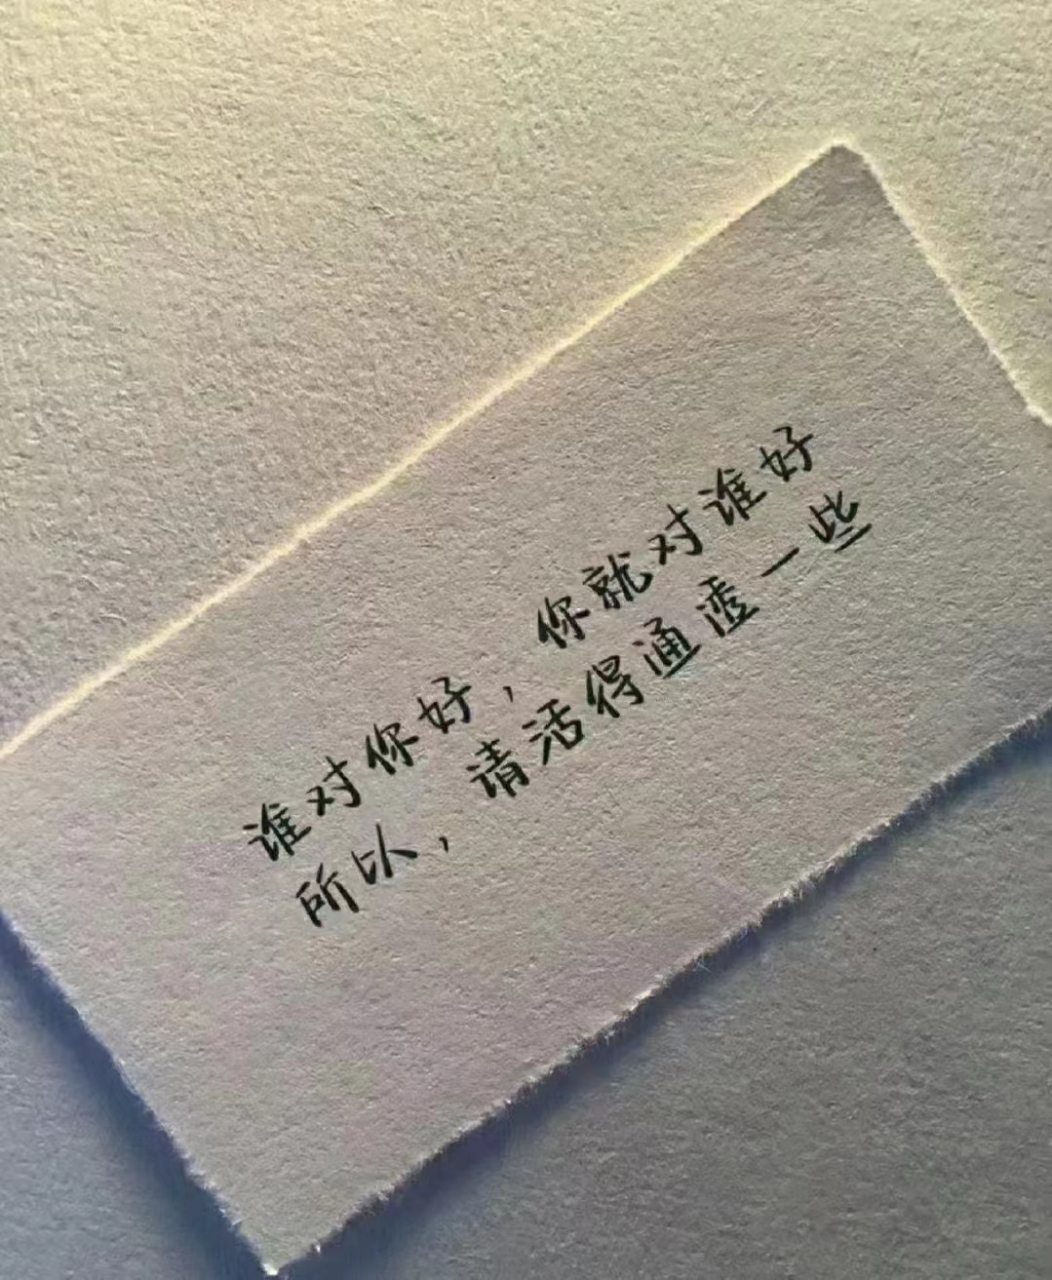 谁对你好，你就对谁好
所以，请活得通透一些